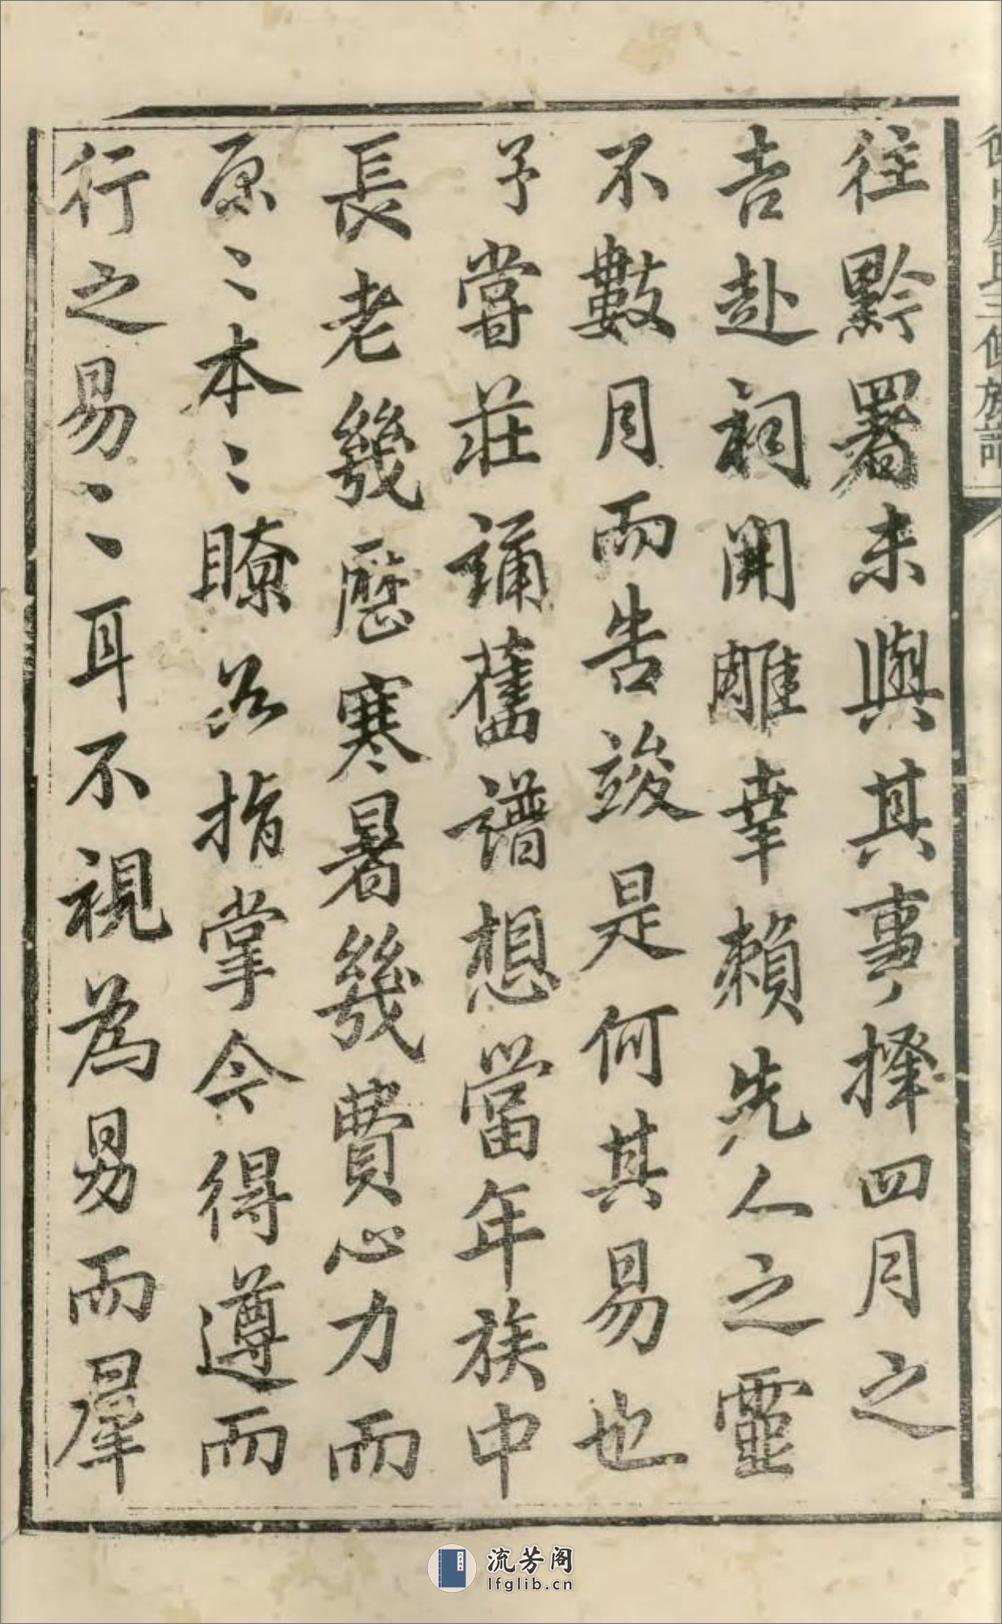 往黔署未與其事擇四月之
吉赴祠開雕幸賴先人之靈
不數月而告竣是何其易也
予嘗莊誦舊譜想當年族中
長老幾歷寒暑幾費心力而
原〻本〻瞭如指掌今得遵而
行之易〻耳不視為易而羣
氏三修族譜
流芳阁
lfglib.cn